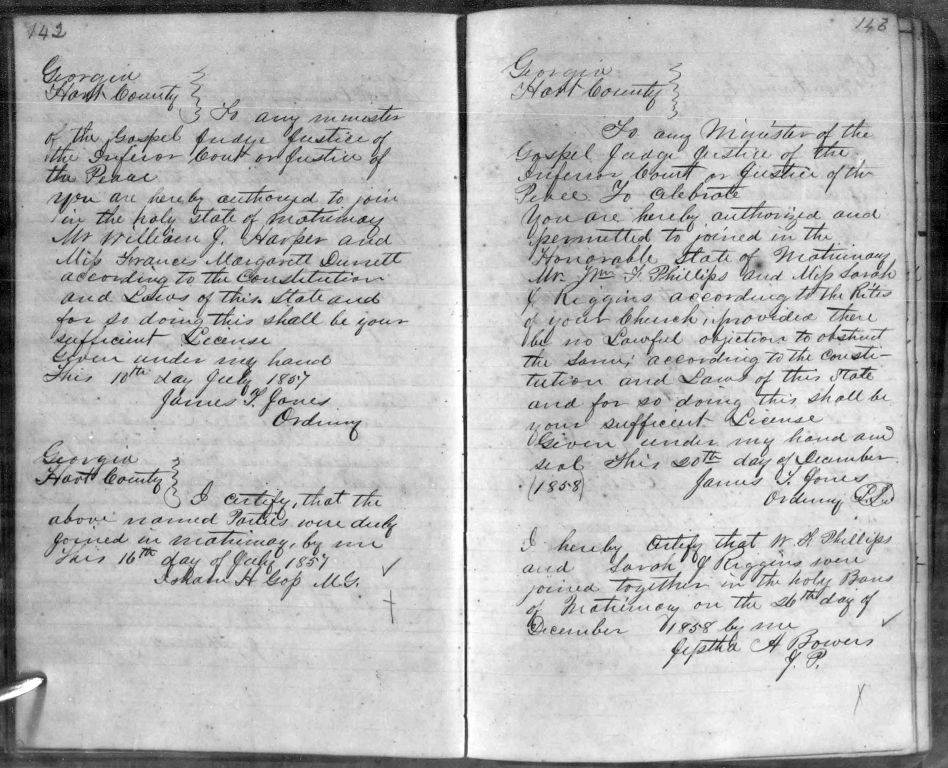 142
Georgia
Hart County
To any minister
of the Gospel Judge Justice of
the Inferor Court or Justice of
the Peace
You are hereby authorized to join
in the holy state of matrimay
Mr William J. Harper and
Miss Frances Margarett Durrett
according to the Constitution
and Laws of this State and
for so doing this shall be your
sufficient License
Given under my hand
This 10th day July 1857
James T. Jones
Ordinary
Georgia
Hart County
I certify, that the
above named Parties were duly
joined in matrimay, by me
This 16th day of July 1857
Isham H Goss M.G.
143
Georgia
Hart County
To any Minister of the
Gospel Judge Justice of the
Inferior Court or Justice of the
Peace To Celebrate
You are hereby authorized and
permitted to joined in the
Honorable State of Matrimony
Mr. Wm T. Phillips and Miss Sarah
J Riggins according to the Rites
of your Church, provided there
be no Lawful objection to obstruct
the same, according to the consti-
tution and Laws of this State
and for so doing this shall be
your sufficient License
Given under my hand and
seal This 20th day of December
(1858) James T. Jones
Ordinary
I hereby certify that W. Phillips
and Sarah J Riggins were
joined together in the holy Bans
of Matrimony on the 26th day of
December 1858 by me
Jeptha A Bowers
J. P.